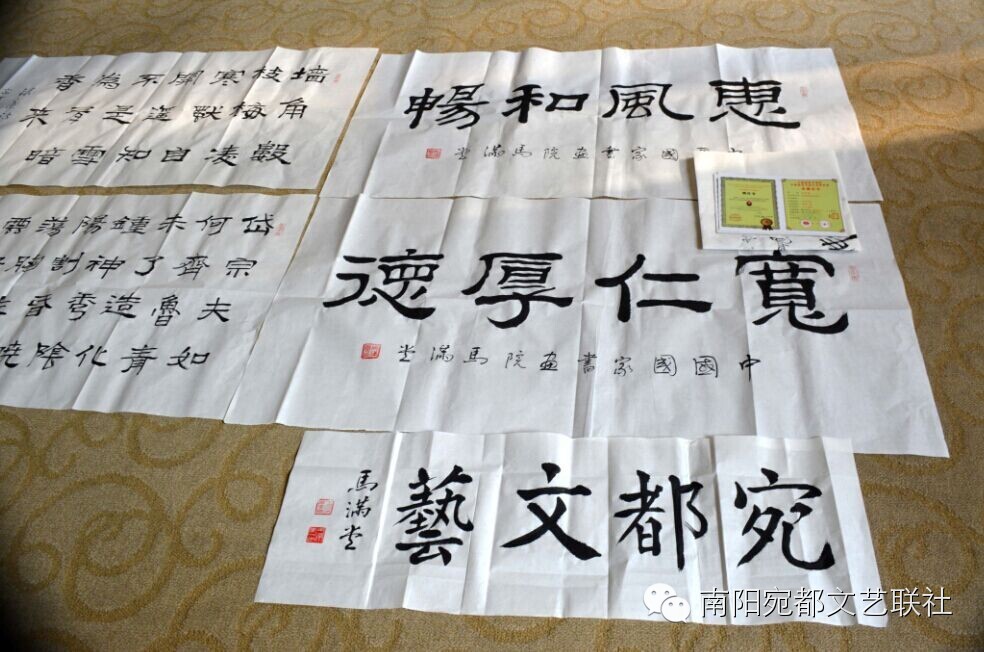 惠風和暢
國家書画院馬滿堂
寬仁厚德
中國國家書画院馬滿堂
宛都文藝
馬滿堂
墙角數
枝梅凌
寒獨自
開遥知
不是雪
為有暗
香来
岱宗夫如
何齊魯青
未了造化
鍾神秀陰
陽割昏曉
蕩胸生
南阳宛都文艺联社